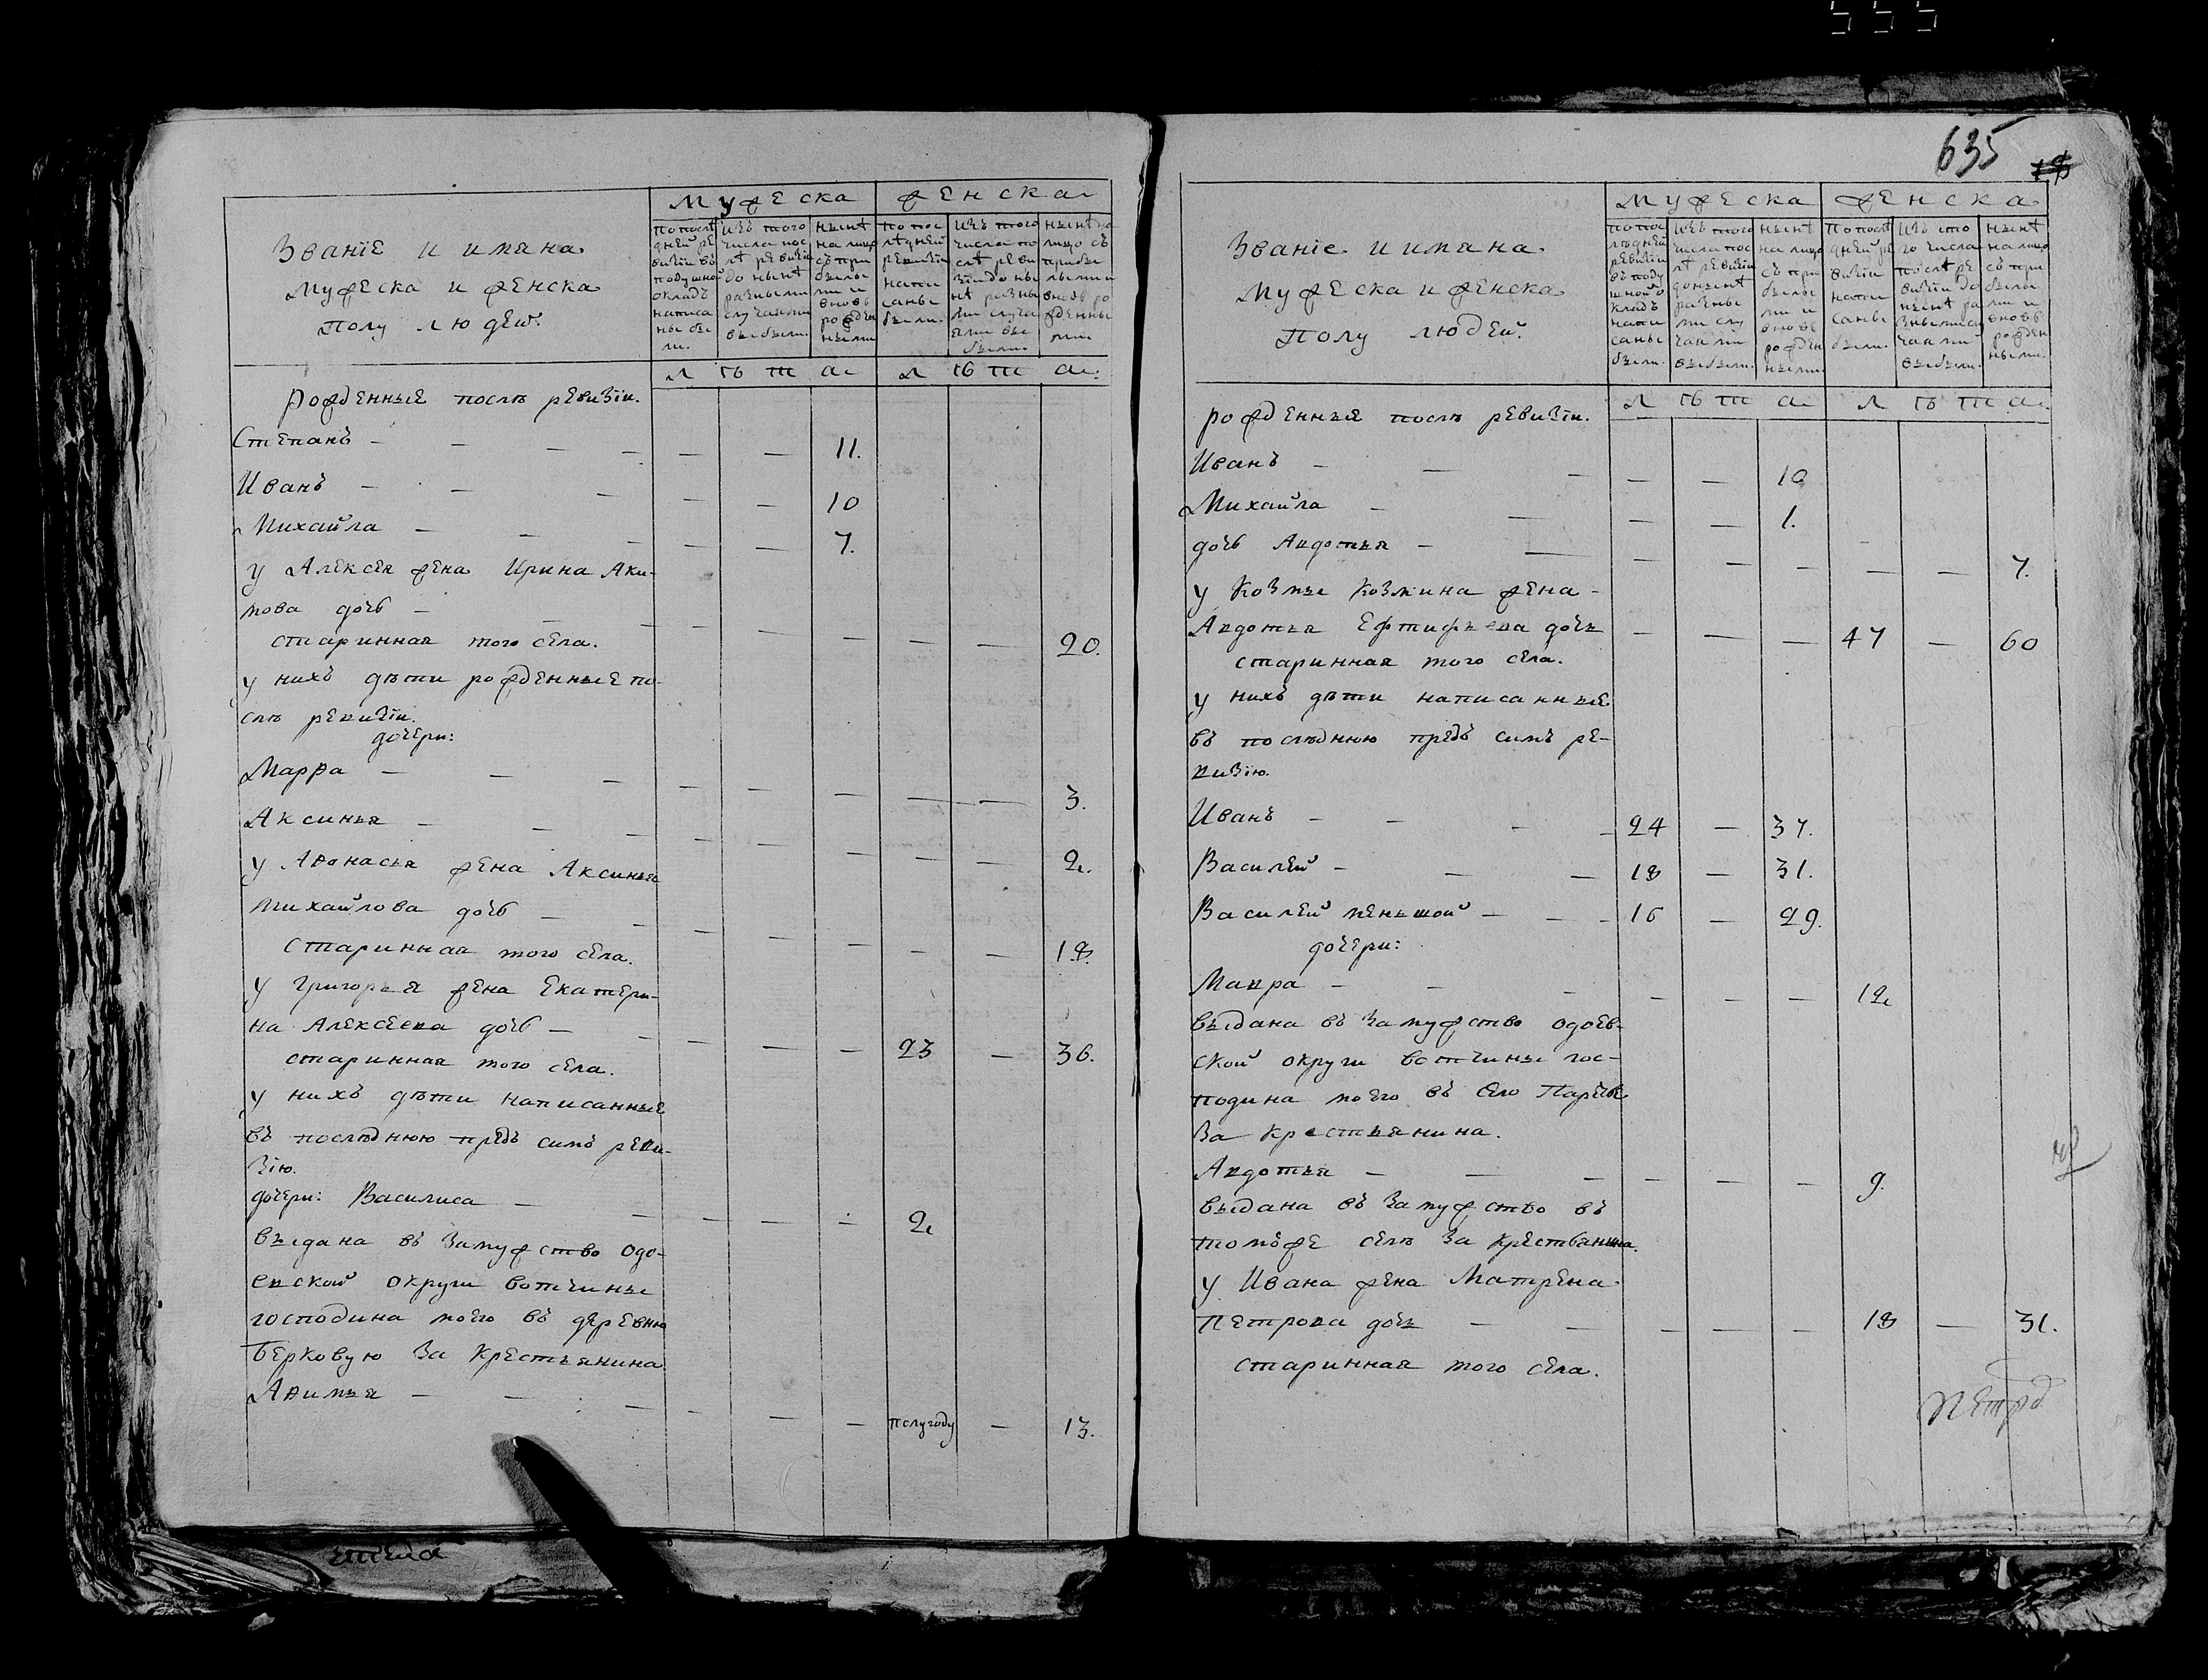 555
635
Званіе и имяна
мужеска и женска
полу людей.
мужеска
женска
по послѣдней ревизіи въ подушной окладъ написаны были.
изъ того числа послѣ ревизіи до нынѣ разными случаями выбыли.
нынѣ на лицо съ прибылыми и вновь рожденными
по послѣдней ревизіи написаны были.
изъ того числа послѣ ревизіи до нынѣ разными случаями выбыли.
нынѣ на лицо съ прибылыми и вновь рожденными
лѣта
лѣта
рожденные послѣ ревизіи.
Степанъ — — — — — — 11.
Иванъ — — — — — 10
Михайла — — — — — 7.
у Алексея жена Ирина Аки-
мова дочь — — — — — — — — 20.
старинная того села.
у нихъ дѣти рожденные по-
слѣ ревизіи.
дочери:
Марѳа — — — — — — — — 3.
Аксинья — — — — — — — — 2.
у Аѳонасья жена Аксинья
Михайлова дочь — — — — — — — 18.
старинная того села.
у Григорья жена Екатери-
на Алексеева дочь — — — — — 23 — 36.
старинная того села.
у нихъ дѣти написанные
въ послѣднюю предъ симъ реви-
зію.
дочери: Василиса — — — — — 2.
выдана въ замужство одо-
евской округи вотчины
господина моего въ деревню
Берковую за крестьянина.
Аѳимья — — — — — — полугоду — 13.
Званіе и имяна
мужеска и женска
полу людей.
мужеска
женска
по послѣдней ревизіи въ подушной окладъ написаны были.
изъ того числа послѣ ревизіи до нынѣ разными случаями выбыли.
нынѣ на лицо съ прибылыми и вновь рожденными.
по послѣдней ревизіи написаны были.
изъ сего числа послѣ ревизіи до нынѣ разными случаями выбыли.
нынѣ на лицо съ прибылыми и вновь рожденными.
лѣта
лѣта
рожденныя послѣ ревизіи.
Иванъ — — — — — 10
Михайла — — — — 1.
дочь Авдотья — — — — — — — 7.
у Козмы Козмина жена
Авдотья Ефтифѣева дочь — — — 47 — 60
старинная того села.
у нихъ дѣти написанные
въ послѣднюю предъ симъ ре-
визію.
Иванъ — — — — 24 — 37.
Василей — — — 18 — 31.
Василей меньшой — — — 16 — 29.
дочери:
Мавра — — — — — — 12.
выдана въ замужство одоев-
ской округи вотчины гос-
подина моего въ село Парѣчье
за крестьянина.
Авдотья — — — — — — 9.
выдана въ замужство въ
томъже селѣ за крестьянина.
у Ивана жена Матрена
Петрова дочь — — — — — 18 — 31.
старинная того села.
Петръ